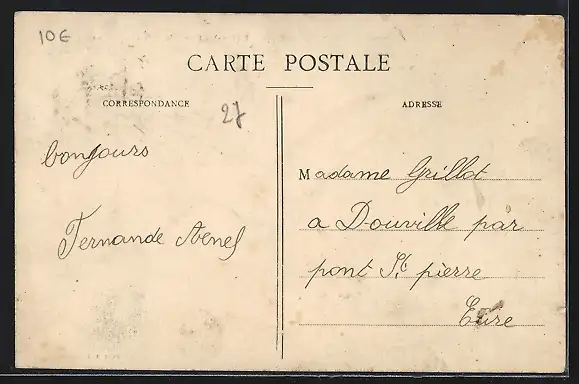 10€
CARTE POSTALE
CORRESPONDANCE
ADRESSE
27
bonjours
Fernande
Madame Grillot
a Douville par
pont St pierre
Eure